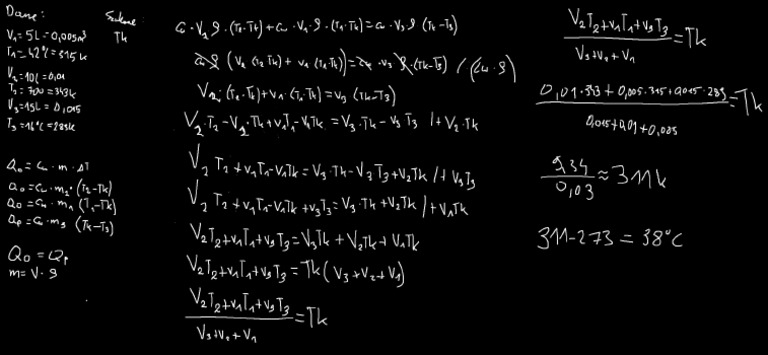 Dane:
V₁=5L=0,005m³
T₁=42°C=315k
V₂=10l=0,01
T₂=70°C=343k
V₃=15L=0,015
T₃=16°C=289k
Szukane:
Tk
Qo=Cw·m·ΔT
Qo=Cw·m₂·(T₂-Tk)
Qo=Cw·m₁(T₁-Tk)
Qp=Cw·m₃(Tk-T₃)
Qo=Qp
m=V·ρ
Cw·V₂ρ·(T₂-Tk)+Cw·V₁·ρ·(T₁-Tk)=Cw·V₃ρ(Tk-T₃)
Cwρ(V₂(T₂-Tk)+V₁(T₁-Tk))=Cw·V₃·ρ·(Tk-T₃) /(Cw·ρ)
V₂·(T₂-Tk)+V₁·(T₁-Tk)=V₃(Tk-T₃)
V₂·T₂-V₂·Tk+V₁T₁-V₁Tk=V₃·Tk-V₃T₃ /+V₂·Tk
V₂T₂+V₁T₁-V₁Tk=V₃·Tk-V₃T₃+V₂Tk/+V₃T₃
V₂T₂+V₁T₁-V₁Tk+V₃T₃=V₃·Tk+V₂Tk/+V₁Tk
V₂T₂+V₁T₁+V₃T₃=V₃Tk+V₂Tk+V₁Tk
V₂T₂+V₁T₁+V₃T₃=Tk(V₃+V₂+V₁)
V₂T₂+V₁T₁+V₃T₃
=Tk
V₃+V₂+V₁
V₂T₂+V₁T₁+V₃T₃
=Tk
V₃+V₂+V₁
0,01·343+0,005·315+0,015·289
=Tk
0,015+0,01+0,005
9,34
≈311k
0,03
311-273=38°C